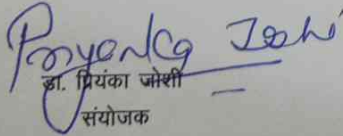 Priyanka Joshi
डा. प्रियंका जोशी
संयोजक